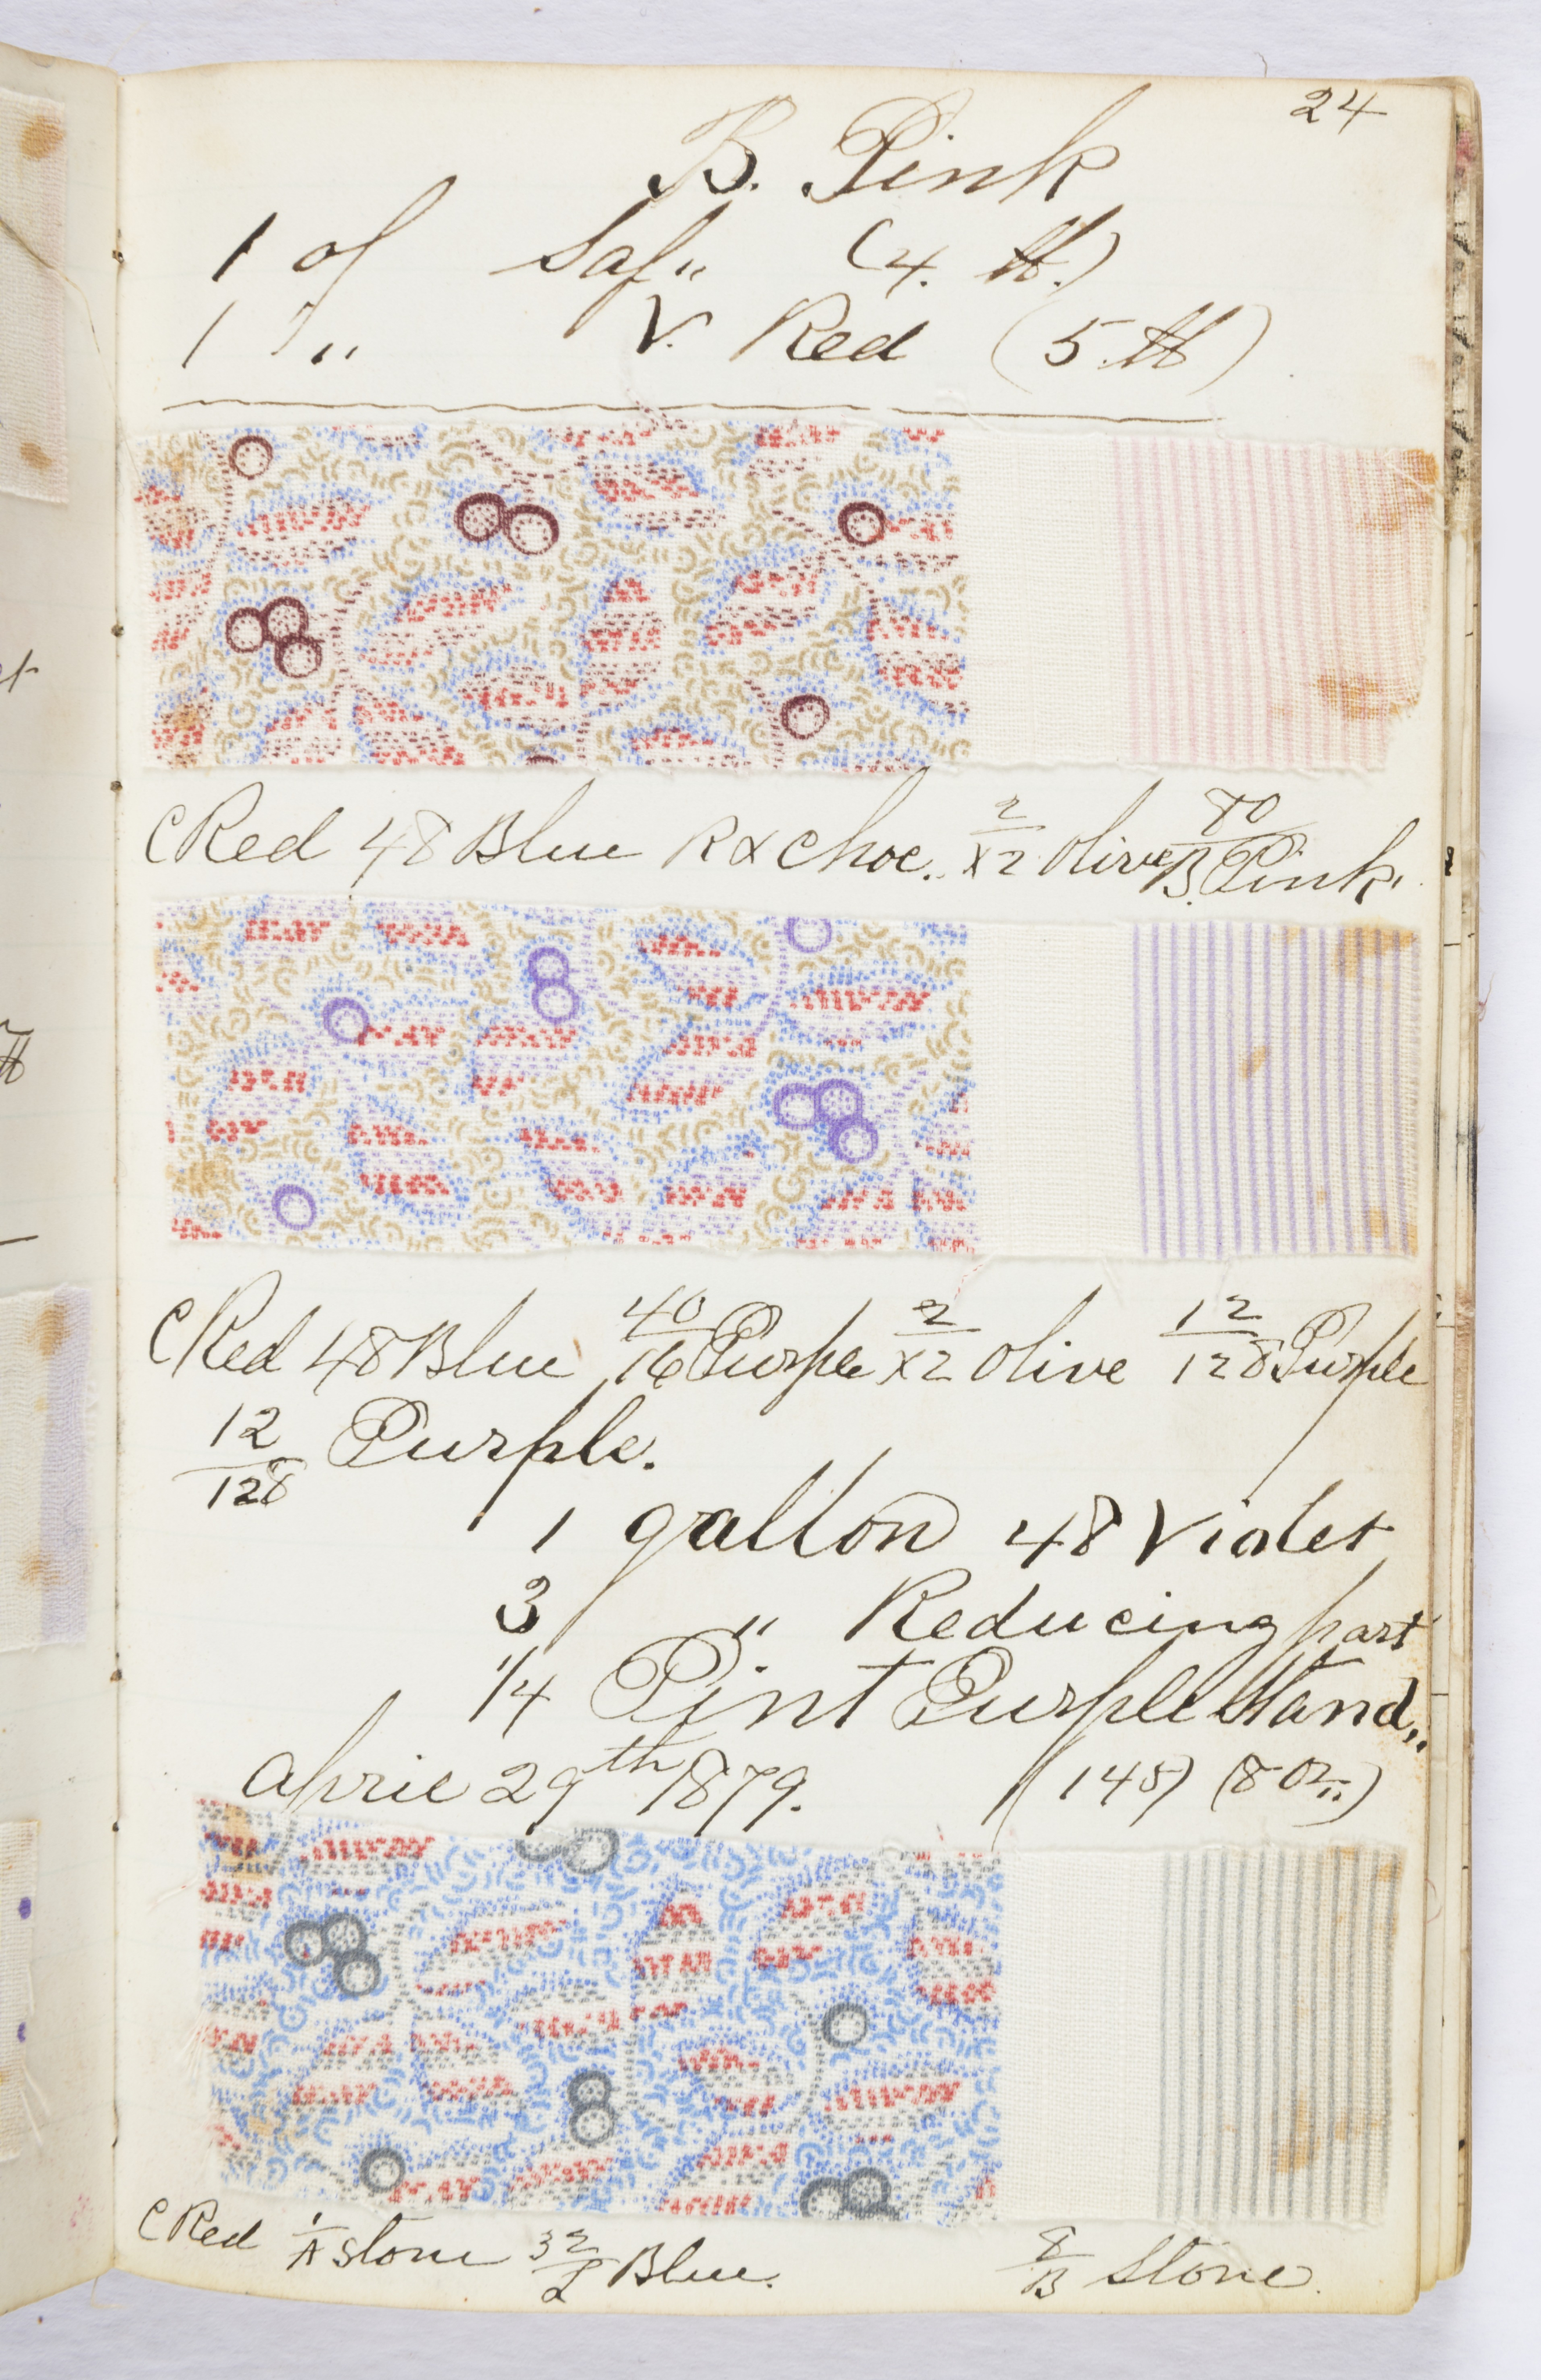 24
B. Pink
1 of Saf„ (4. ℔.)
1 „ V. Red (5 ℔)
C Red 48 Blue RX Choc. 2/X2 Olive 80/B. Pink.
C Red 48 Blue 40/16 Purple 2/X2 Olive 12/128 Purple
12/128 Purple.
1 gallon 48 Violet
3 „ Reducing part
1/4 Pint Purple Stand„
April 29th 1879. (145) (8 oz„)
C Red 1/A Stone 32/L Blue. 8/B Stone.